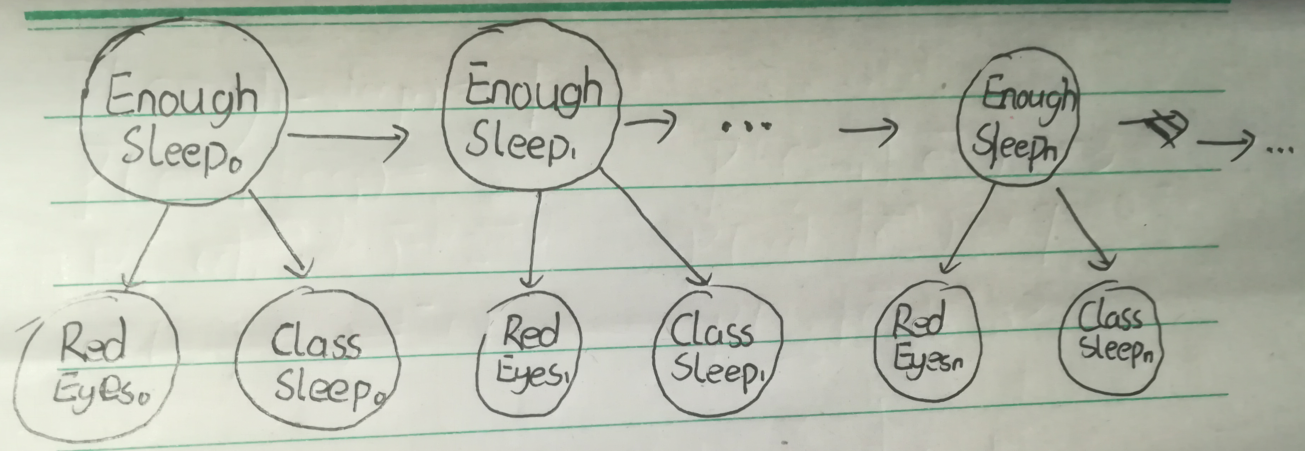 Enough
Sleep₀
Enough
Sleep₁
...
Enough
Sleepn
...
Red
Eyes₀
Class
Sleep₀
Red
Eyes₁
Class
Sleep₁
Red
Eyesn
Class
Sleepn